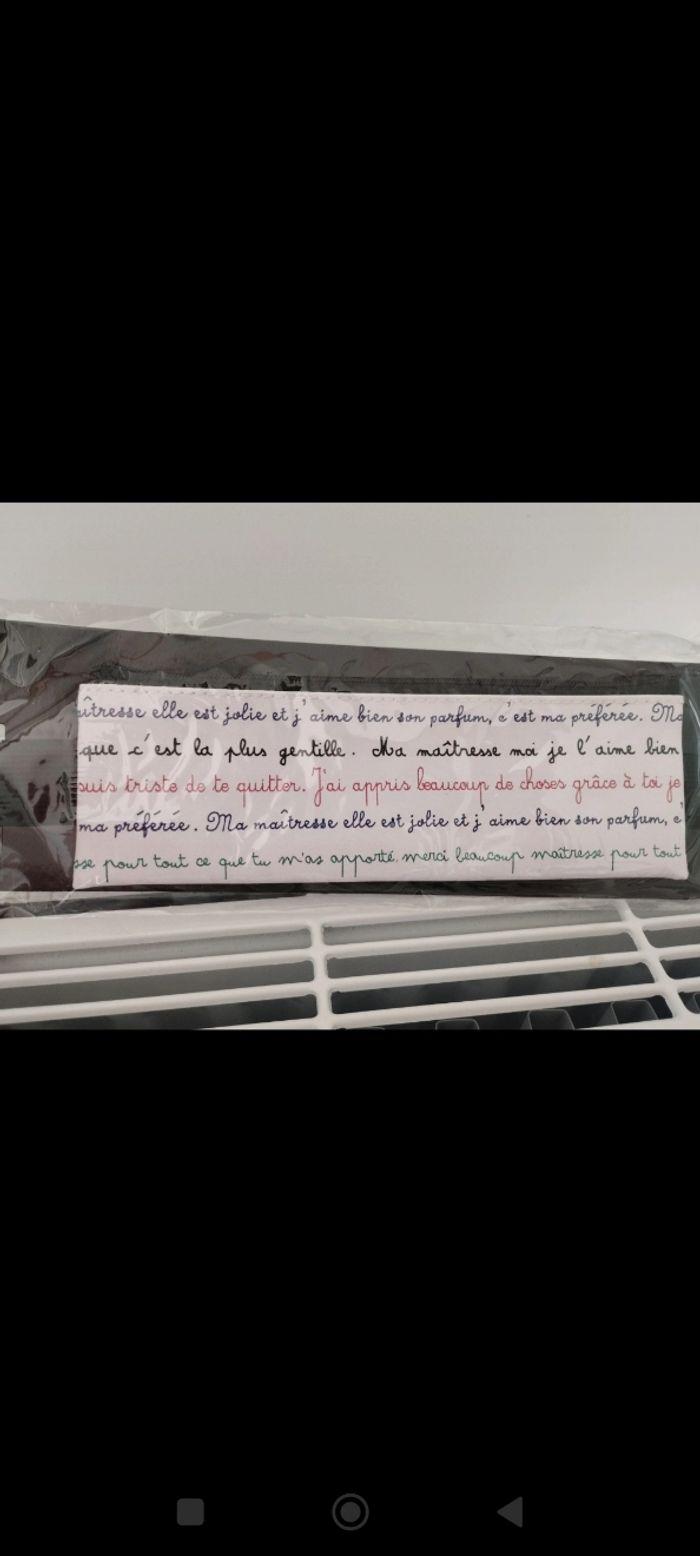 aîtresse elle est jolie et j'aime bien son parfum, c'est ma préférée. Ma
que c'est la plus gentille. Ma maîtresse moi je l'aime bien
suis triste de te quitter. J'ai appris beaucoup de choses grâce à toi je
ma préférée. Ma maîtresse elle est jolie et j'aime bien son parfum, c'
sse pour tout ce que tu m'as apporté, merci beaucoup maîtresse pour tout